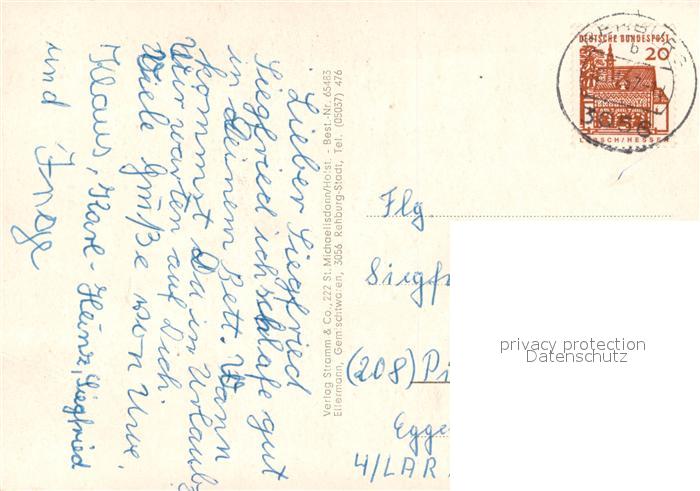 Lieber Siegfried
Siegfried ich schlafe gut
in Deinem Bett. Wann
kommst Du in Urlaub
Wir warten auf Dich
Viele Grüße von Uwe.
Klaus, Karl-Heinz, Siegfried
und Inge
Verlag Stramm & Co., 222 St. Michaelisdonn/Holst. - Best.-Nr. 65483
Ellermann, Gemischtwaren, 3056 Rehburg-Stadt, Tel. (05037) 476
DEUTSCHE BUNDESPOST
20
LORSCH/HESSEN
b
3056
Flg
Siegf
(208) Pi
Egge
4/LAR
privacy protection
Datenschutz